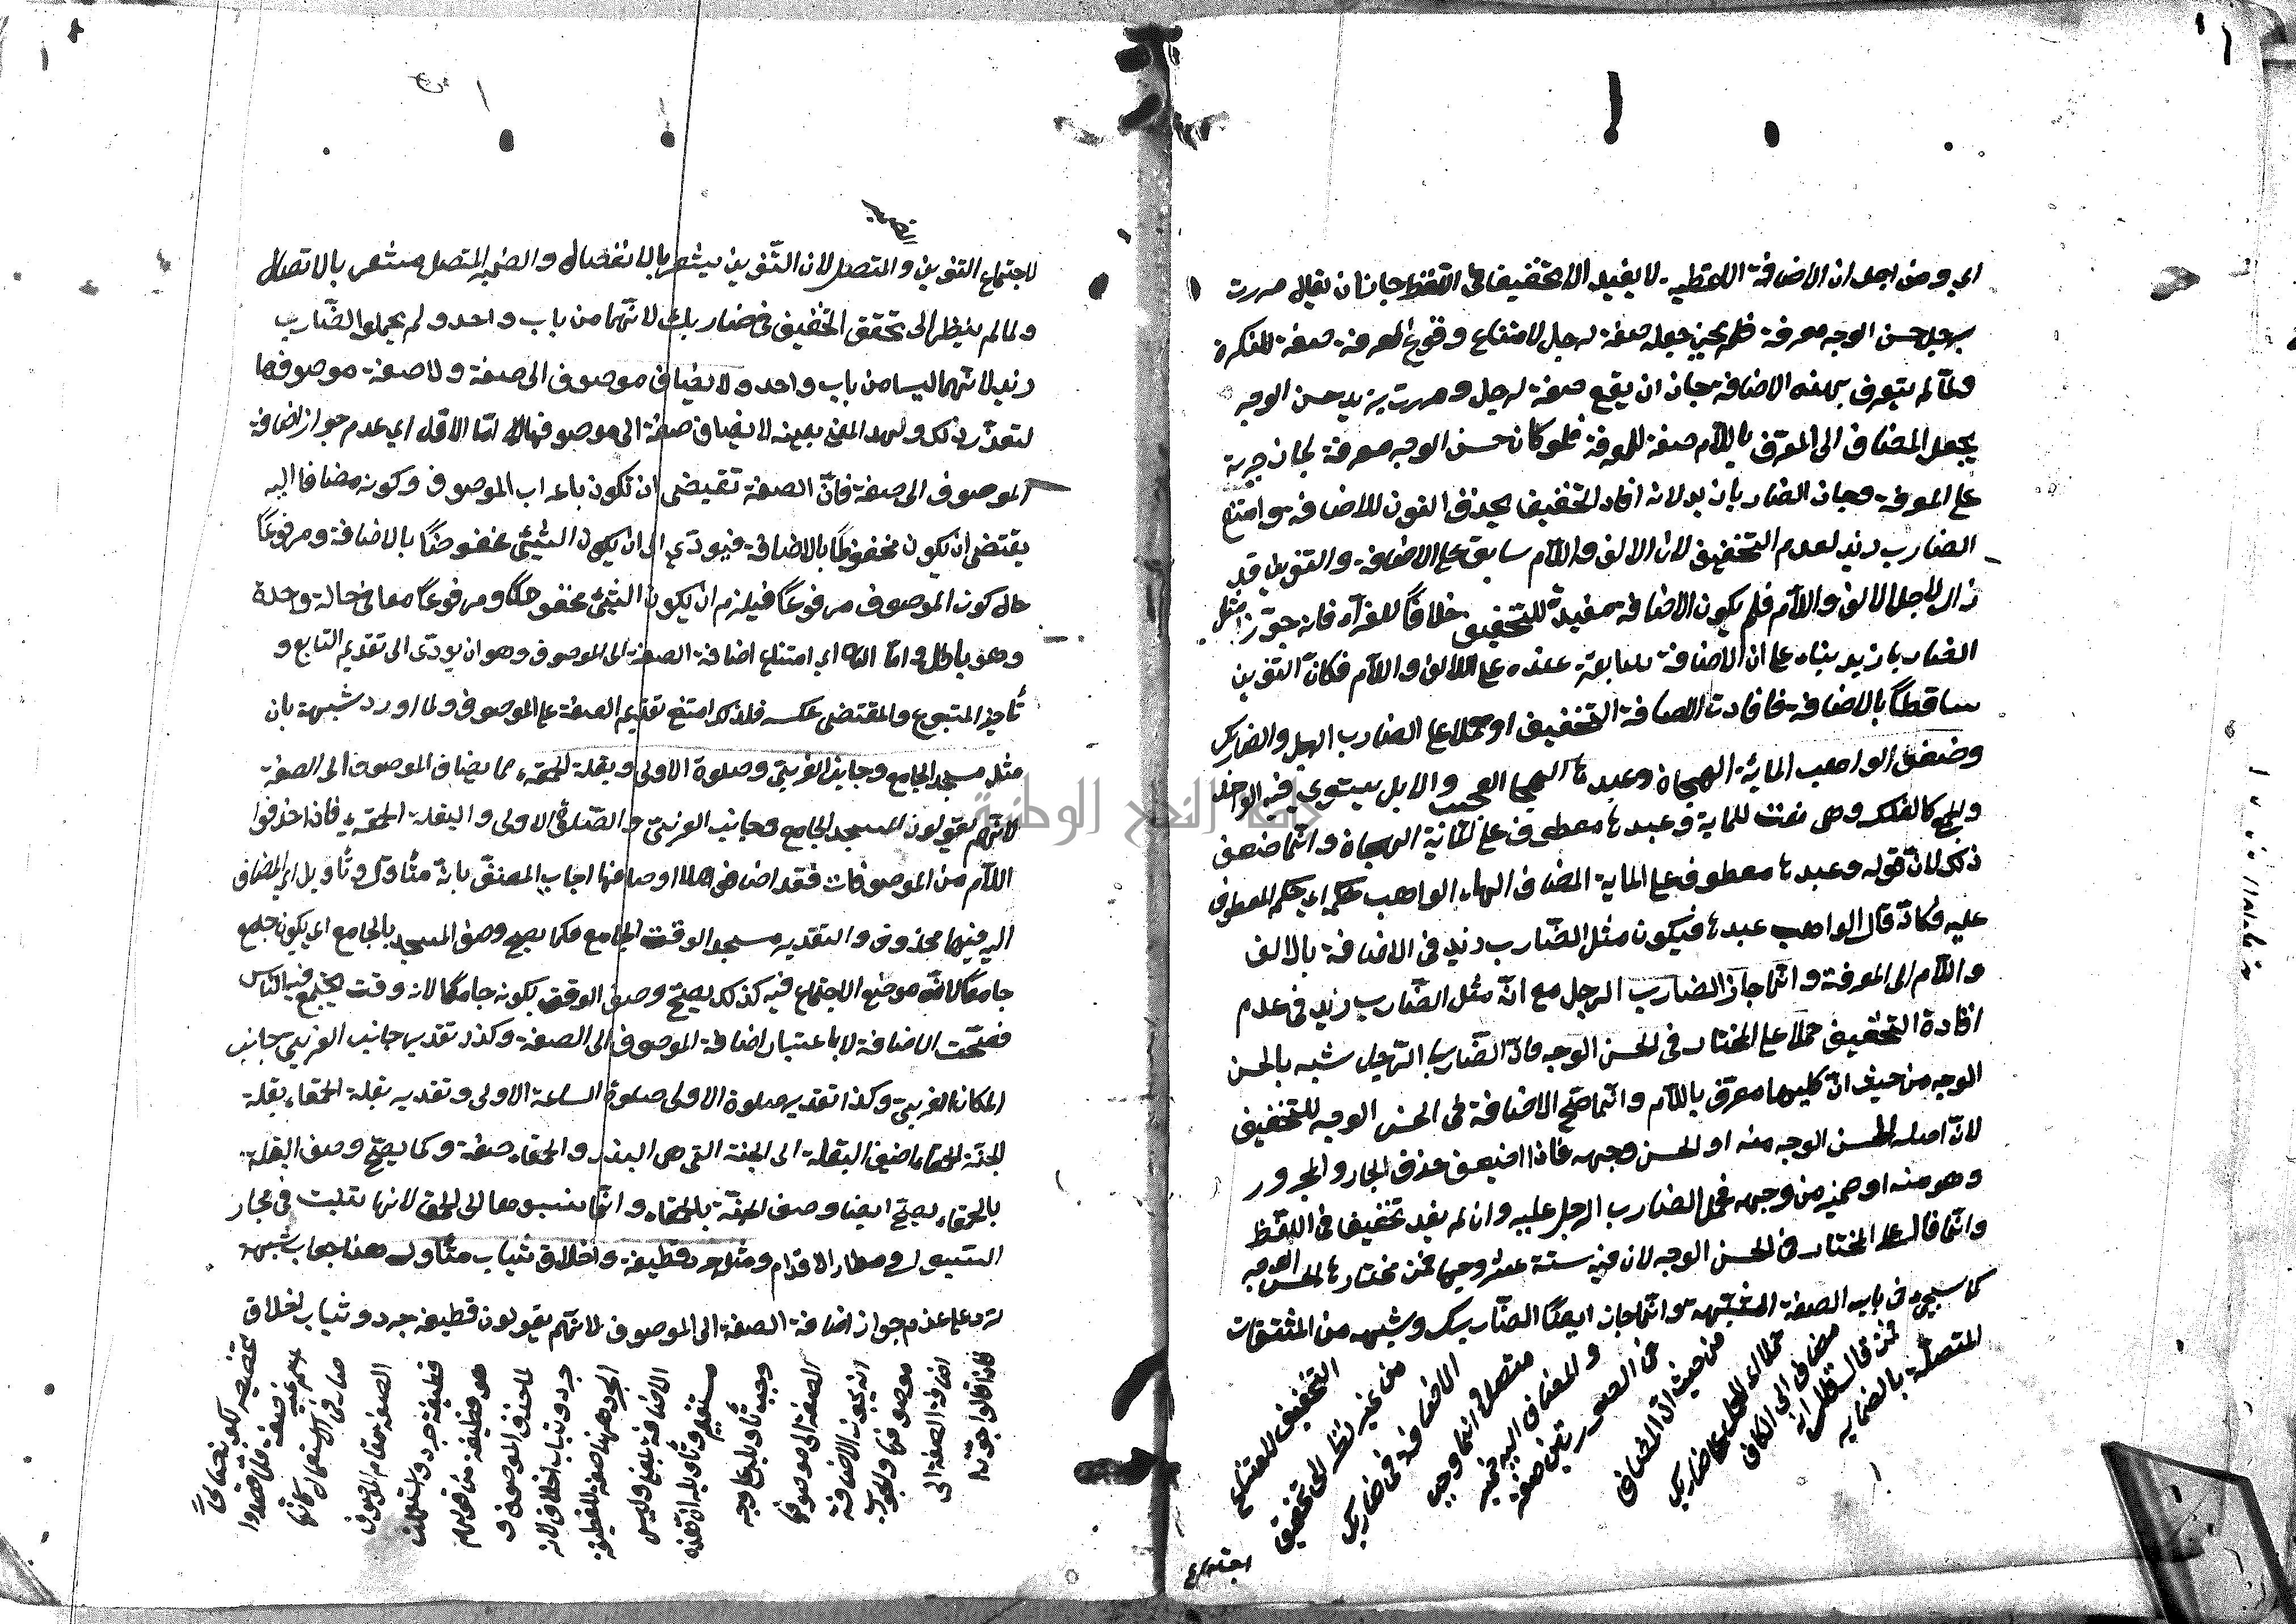 اي ومن اجل ان الاضافة اللفظية لا يفيد الا تخفيفا في اللفظ جاز ان يقال مررت
برجل حسن الوجه معرفة فلم يجز جعله صفة لرجل لامتناع وقوع المعرفة صفة للنكرة
ولما لم يتعرف بهذه الاضافة جاز ان يقع صفة لرجل ومررت بزيد حسن الوجه
يجعل المضاف الى المعرف باللام صفة للمعرفة فلو كان حسن الوجه معرفة لجاز جريه
على المعرفة وجاز الضاربا زيد لانه افاد التخفيف بحذف النون للاضافة وامتنع
الضارب زيد لعدم التخفيف لان الالف واللام سابق على الاضافة والتنوين قد
زال لاجل الالف واللام فلم يكون الاضافة مفيدة للتخفيف خلافا للفراء فانه جوز مثل
الضارب زيد بناء على ان الاضافة سابقة عنده على الالف واللام فكان التنوين
ساقطا بالاضافة فافادت الاضافة التخفيف او حملا على الضارب الرجل والضاربك
وضعف الواهب المائة الهجان وعبدها الهجان والابل يستوي فيه الواحد
والجمع كالفلك وهي نعت للماية وعبدها معطوف على المائة الهجان وانما ضعف
ذلك لان قوله وعبدها معطوف على الماية المضاف اليها الواهب حكمه اي حكم المعطوف
عليه فكانه قال الواهب عبدها فيكون مثل الضارب زيد في الاضافة بالالف
واللام الى المعرفة وانما جاز الضارب الرجل مع انه مثل الضارب زيد في عدم
افادة التخفيف حملا على المختار في الحسن الوجه فان الضارب الرجل شبه بالحسن
الوجه من حيث ان كليهما معرف باللام وانما صح الاضافة في الحسن الوجه للتخفيف
لان اصله الحسن الوجه منه او الحسن وجهه فاذا اضيف حذف الجار والمجرور
وهو منه او ضمير من وجهه فحمل الضارب الرجل عليه وان لم يفد تخفيفا في اللفظ
وانما قال على المختار في الحسن الوجه لان فيه ستة عشر وجها فمن مختارها الحسن الوجه
كما سيجيء في باب الصفة المشبهة وانما جاز ايضا الضاربك وشبهه من المشتقات
المتصلة بالضماير
فمن قال انه
مضاف الى الكاف
حملا على ضاربك
من حيث ان المضاف
في الصورتين صفة
والمضاف اليه ضمير
متصل وانما وجب
الاضافة في ضاربك
من غير نظر الى تخفيف
التخفيف لامتناع
الضمير
لاجتماع التنوين والمتصل لان التنوين يشعر بالانفصال والضمير المتصل مشعر بالاتصال
ولما لم ينظر الى تحقق التخفيف في ضاربك لانهما من باب واحد ولم يحملوا الضارب
زيد لانهما ليسا من باب واحد ولا يضاف موصوف الى صفة ولا صفة موصوفها
لتعذر ذلك ولهذا المعنى بعينه لا يضاف صفة الى موصوفها اما الاول اي عدم جواز اضافة
الموصوف الى صفة فان الصفة تقتضي ان تكون باعراب الموصوف وكونه مضافا اليه
يقتضي ان يكون مخفوضا بالاضافة فيؤدي الى ان يكون الشيئ مخفوضا بالاضافة ومرفوعا
حال كون الموصوف مرفوعا فيلزم ان يكون الشيئ مخفوضا ومرفوعا معا في حالة واحدة
وهو باطل واما الثاني اي امتناع اضافة الصفة الى الموصوف وهو ان يودى الى تقديم التابع و
تأخير المتبوع والمقتضى عكسه فلذلك امتنع تقديم الصفة على الموصوف ولما اورد شبهة بان
مثل مسجد الجامع وجانب الغربي وصلوة الاولى وبقلة الحمقاء مما يضاف الموصوف الى الصفة
لانهم يقولون المسجد الجامع وجانب الغربي والصلوة الاولى والبقلة الحمقاء فاذا حذفوا
اللام من الموصوفات فقد اضافوها الى اوصافها اجاب المصنف بانه متأول وتأويل اي المضاف
اليه فيها محذوف والتقدير مسجد الوقت الجامع فكما يصح وصف المسجد بالجامع اي يكون
جامعا لانه موضع الاجتماع فيه كذلك يصح وصف الوقت بكونه جامعا لانه وقت يجتمع فيه الناس
فصحت الاضافة لا باعتبار اضافة الموصوف الى الصفة وكذا تقدير جانب الغربي جانب
المكان الغربي وكذا تقدير صلوة الاولى صلوة الساعة الاولى وتقدير بقلة الحمقاء بقلة
الحبة الحمقاء اضيف البقلة الى الحبة التي هي البذر والحمقاء صفة وكما يصح وصف البقلة
بالحمقاء يصح ايضا وصف الحبة بالحمقاء وانما نسبوها الى الحمق لانها تنبت في مجار
السيول ومطار الاقدام ومثل جرد قطيفة واخلاق ثياب متأول هذا جواب شبهة
ترد على عدم جواز اضافة الصفة الى الموصوف لانهم يقولون قطيفة جرد وثياب اخلاق
فاذا قالوا جوزوا
اضافة الصفة الى
موصوفها والجواب
انه يجوز الاضافة
الصفة الى موصوفها
وجب تأويلها على وجه
مستقيم وتأويله ان هذه
الاضافة بمعنى وليس
الجرد ههنا صفة للقطيفة
جرد وثياب اخلاق لانه
لما حذف الموصوف و
هو قطيفة من قولهم
قطيفة جرد واستعملت
الصفة مقام الموصوف
صار في الاستعمال كانها
اسم غير صفة فلما قصدوا
تخصيصه لكونه صالحا